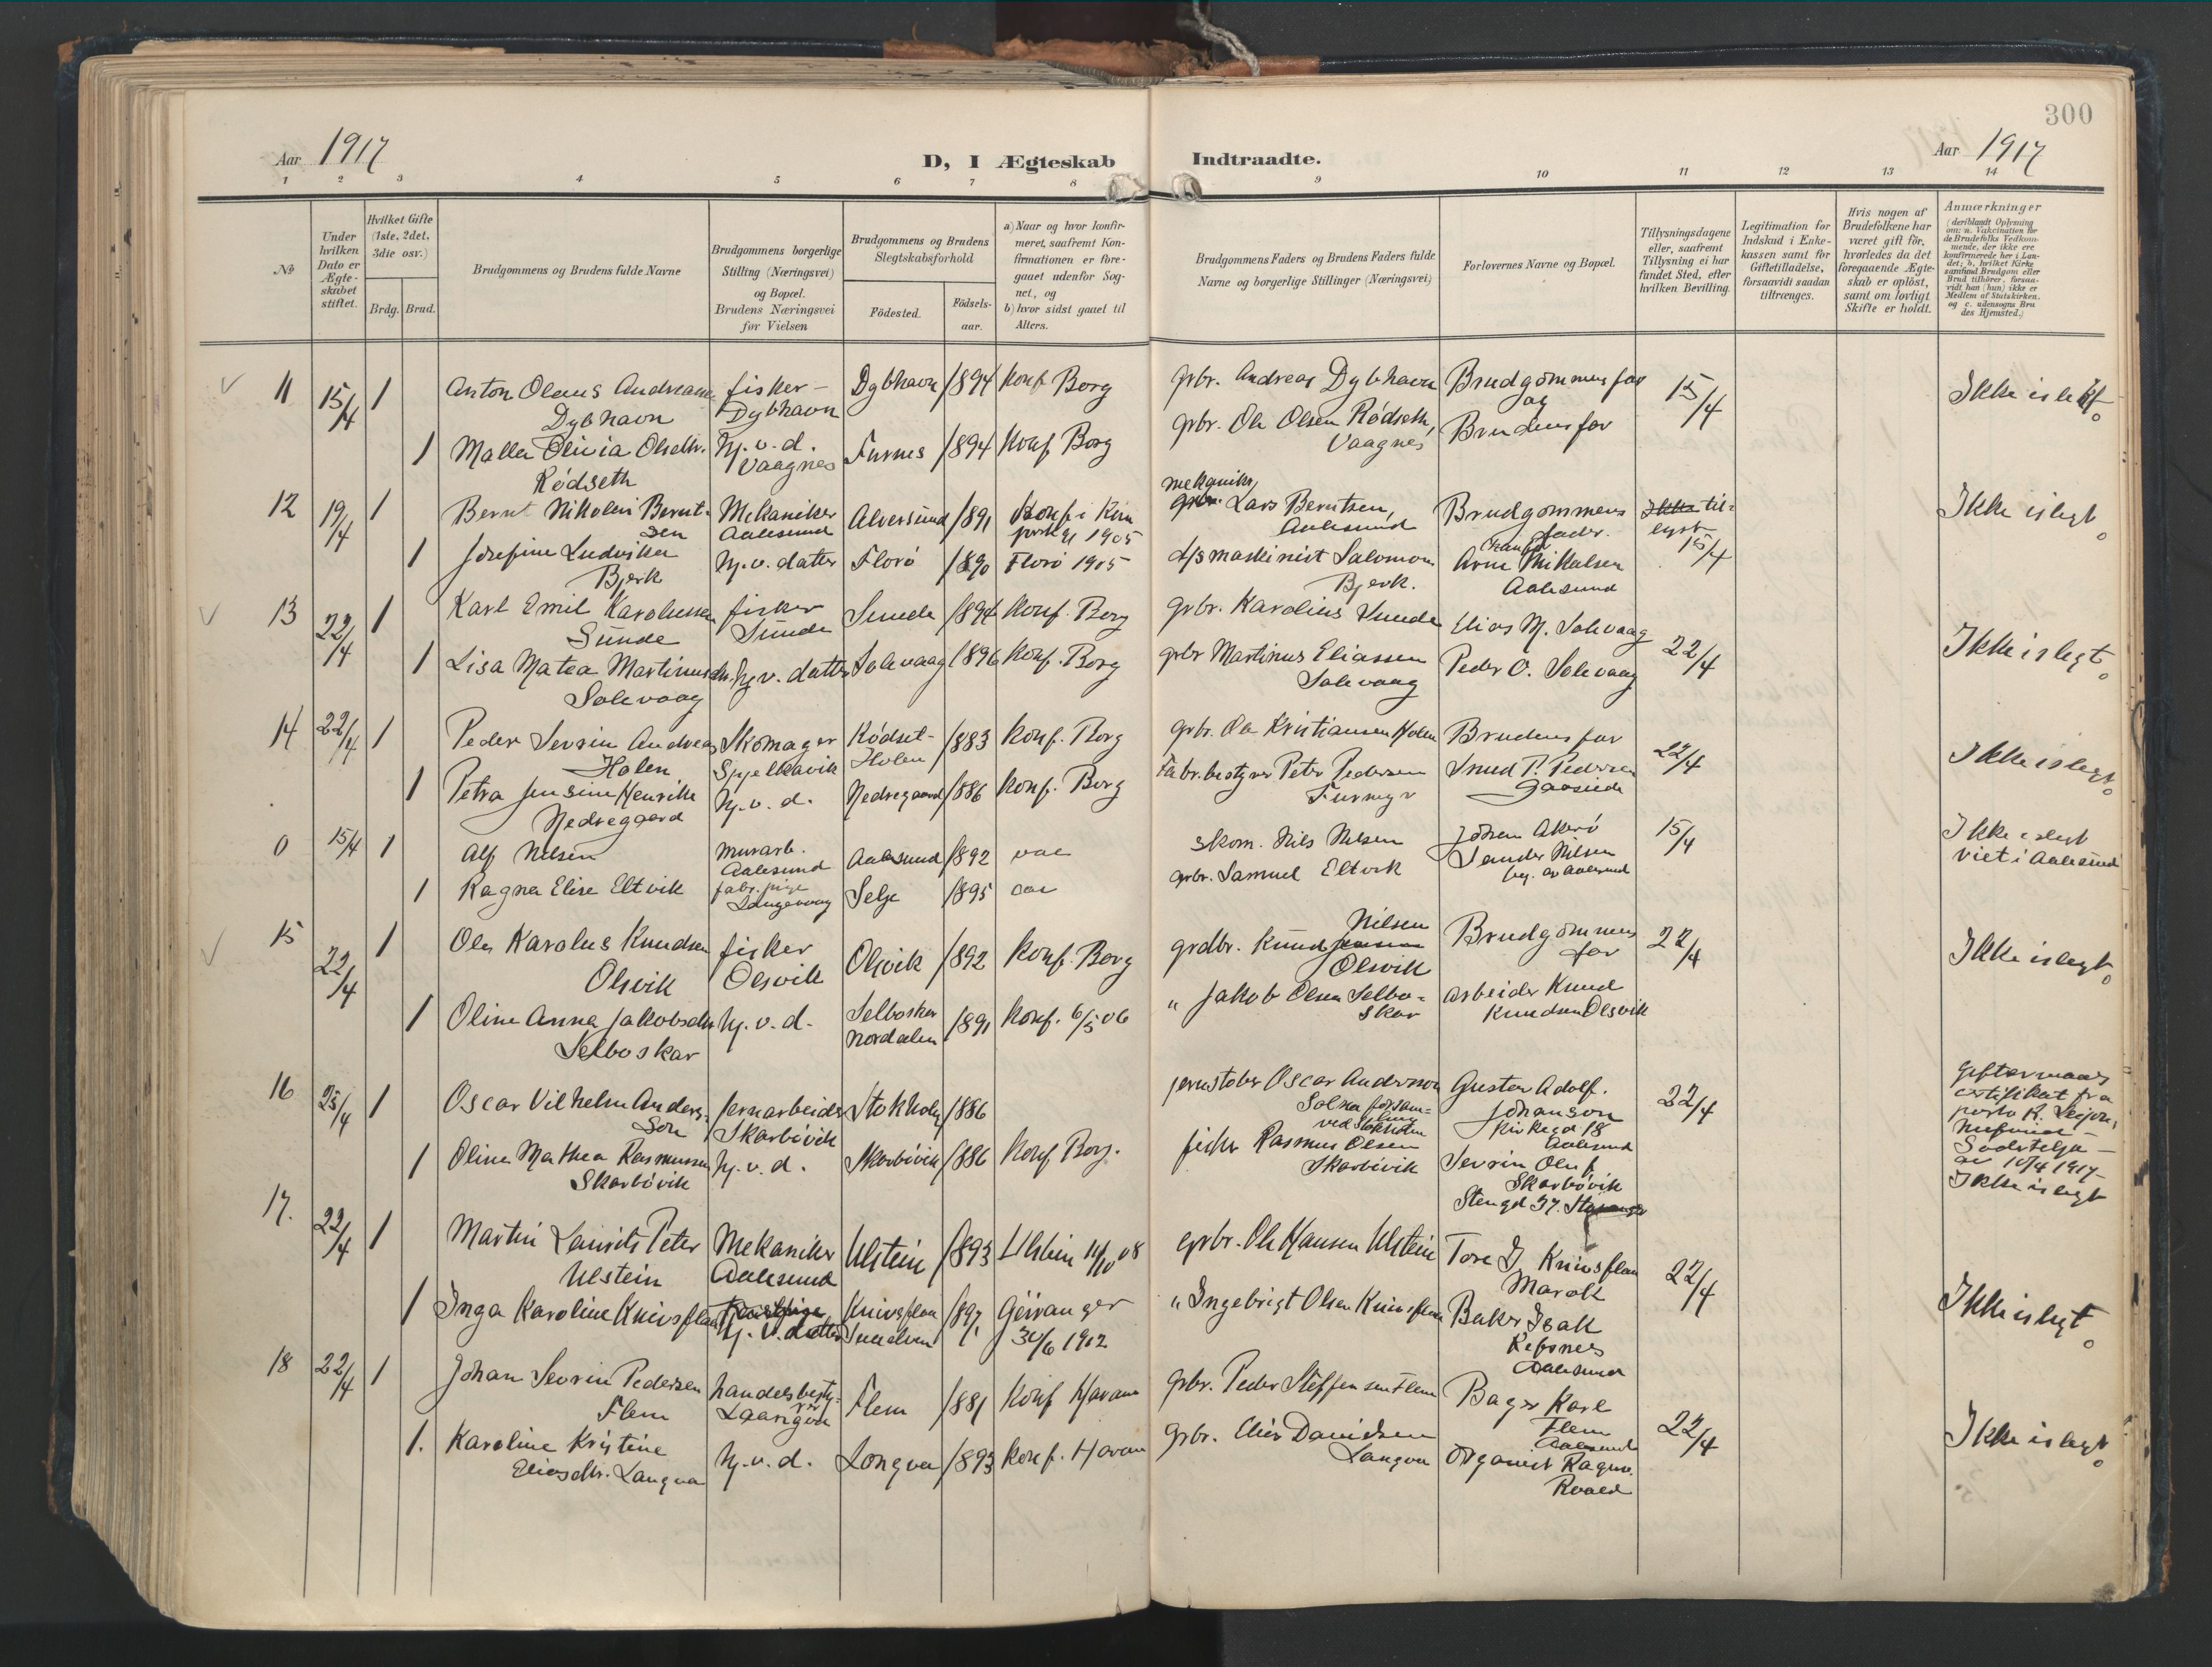 300
Aar 1917
D, I Ægteskab Indtraadte.
Aar 1917
1 2 3 4 5 6 7 8 9 10 11 12 13 14
No
Under hvilken Dato er Ægteskabet stiftet.
Hvilket Gifte (1ste, 2det, 3die osv.)
Brdg. Brud.
Brudgommens og Brudens fulde Navne
Brudgommens borgerlige Stilling (Næringsvei) og Bopæl. Brudens Næringsvei før Vielsen
Brudgommens og Brudens Slegtskabsforhold
Födested.
Födselsaar.
a) Naar og hvor konfirmeret, saafremt Konfirmationen er foregaaet udenfor Sognet, og
b) hvor sidst gaaet til Alters.
Brudgommens Faders og Brudens Faders fulde Navne og borgerlige Stillinger (Næringsvei)
Forlovernes Navne og Bopæl.
Tillysningsdagene eller, saafremt Tillysning ei har fundet Sted, efter hvilken Bevilling.
Legitimation for Indskud i Enkekassen samt for Giftetilladelse, forsaavidt saadan tiltrænges.
Hvis nogen af Brudefolkene har været gift för, hvorledes da det foregaaende Ægteskab er oplöst, samt om lovligt Skifte er holdt.
Anmærkninger
(deriblandt Oplysning om: a. Vakcination for de Brudefolks Vedkommende, der ikke ere konfirmerede her i Landet; b. hvilket Kirkesamfund Brudgom eller Brud tilhører, forsaavidt han (hun) ikke er Medlem af Statskirken, og c. udensogns Brudes Hjemsted.)
11 15/4 1 Anton Olaus Andreasen Dybhavn fisker - Dybhavn Dybhavn 1894 Konf Borg grbr. Andreas Dybhavn Brudgommens far og 15/4 Ikke i slekt
1 Malla Olivia Olsdtr. Rödseth hj.v.d. Vaagnes Furnes 1894 Konf Borg grbr. Ole Olsen Rødseth, Vaagnes Brudens far
12 19/4 1 Bernt Nikolai Berntsen Mekaniker Aalesund Alversund 1891 Konf i Kinn 1905 mekaniker Lars Berntsen, Aalesund Brudgommens fader. Ikke tillyst 15/4 Ikke i slegt
1 Josefine Ludvika Bjerk hj.v. datter Florö 1890 Florö 1905 d/s maskinist Salomon Bjerk. Arne Mikalsen Aalesund
13 22/4 1 Karl Emil Karolussen Sunde fisker Sunde Sunde 1894 Konf. Borg grbr. Karolius Sunde Elias M. Solevaag 22/4 Ikke i slegt
1 Lisa Matea Martinusdtr. Solevaag hj.v. datter Solevaag 1896 Konf. Borg grbr Martinus Eliassen Solevaag Peder O. Solevaag
14 22/4 1 Peder Sevrin Andreas Holen Skomager Spjelkavik Rödset-Holen 1883 Konf. Borg grbr. Ole Kristiansen Holen Brudens far 22/4 Ikke i slegt
1 Petra Jensine Henrikke Nedregaard hj.v.d. Nedregaard 1886 Konf. Borg Fabr.bestyrer Peter Pedersen Furmyr Knud P. Pedersen
0 15/4 1 Alf Nilsen murarb. Aalesund Aalesund 1892 skom. Nils Nilsen Johan Akerö 15/4 Ikke i slegt viet i Aalesund
1 Ragna Elise Eltvik fabr.pige Langevaag Selje 1895 grbr. Samuel Eltvik Sander Nilsen beg. av Aalesund
15 22/4 1 Ole Karolus Knudsen Olsvik fisker Olsvik Olsvik 1892 Konf. Borg grdbr. Knud Nilsen Olsvik Brudgommens far 22/4 Ikke i slegt
1 Oline Anna Jakobsdtr Selboskar hj.v.d. Selboskar Nordalen 1891 Konf. 6/5 06 " Jakob Olsen Selboskar arbeider Knud Knudsen Olsvik
16 25/4 1 Oscar Vilhelm Anderson Jernarbeider Skarbövik Stokholm 1886 jernstöber Oscar Anderson Solna forsamling ved Stokholm Gustav Adolf. Johanson Kirkegd 18 Aalesund 22/4 certifikat fra pastor Södertelje av 10/4 1917 Ikke i slegt
1 Oline Mathea Rasmussen Skarbövik hj.v.d. Skarbövik 1886 Konf Borg. fisker Rasmus Olsen Skarbövik Sevrin Oluf Skarbövik Stengd 37.
17. 22/4 1 Martin Laurits Peter Ulstein Mekaniker Aalesund Ulstein 1893 Ulstein 11/10 08 grbr. Ole Hansen Ulstein Tore J. Knivsflaa Marok 22/4 Ikke i slegt
1 Inga Karoline Knivsflaa hj.v.datter Knivsflaa Sunelven 1897 Geiranger 30/6 1912 " Ingebrigt Olsen Knivsflaa Baker Isak Refsnes Aalesund
18 22/4 1 Johan Sevrin Pedersen Flem handelsbestyrer Flem 1881 Konf Haram grbr. Peder Steffensen Flem Bager Karl Flem Aalesund 22/4 Ikke i slegt
1. Karoline Kristine Eliasdtr. Langva hj.v.d. Longva 1893 Konf. Haram grbr. Elias Davidsen Langva Organist Ragnv. Roald